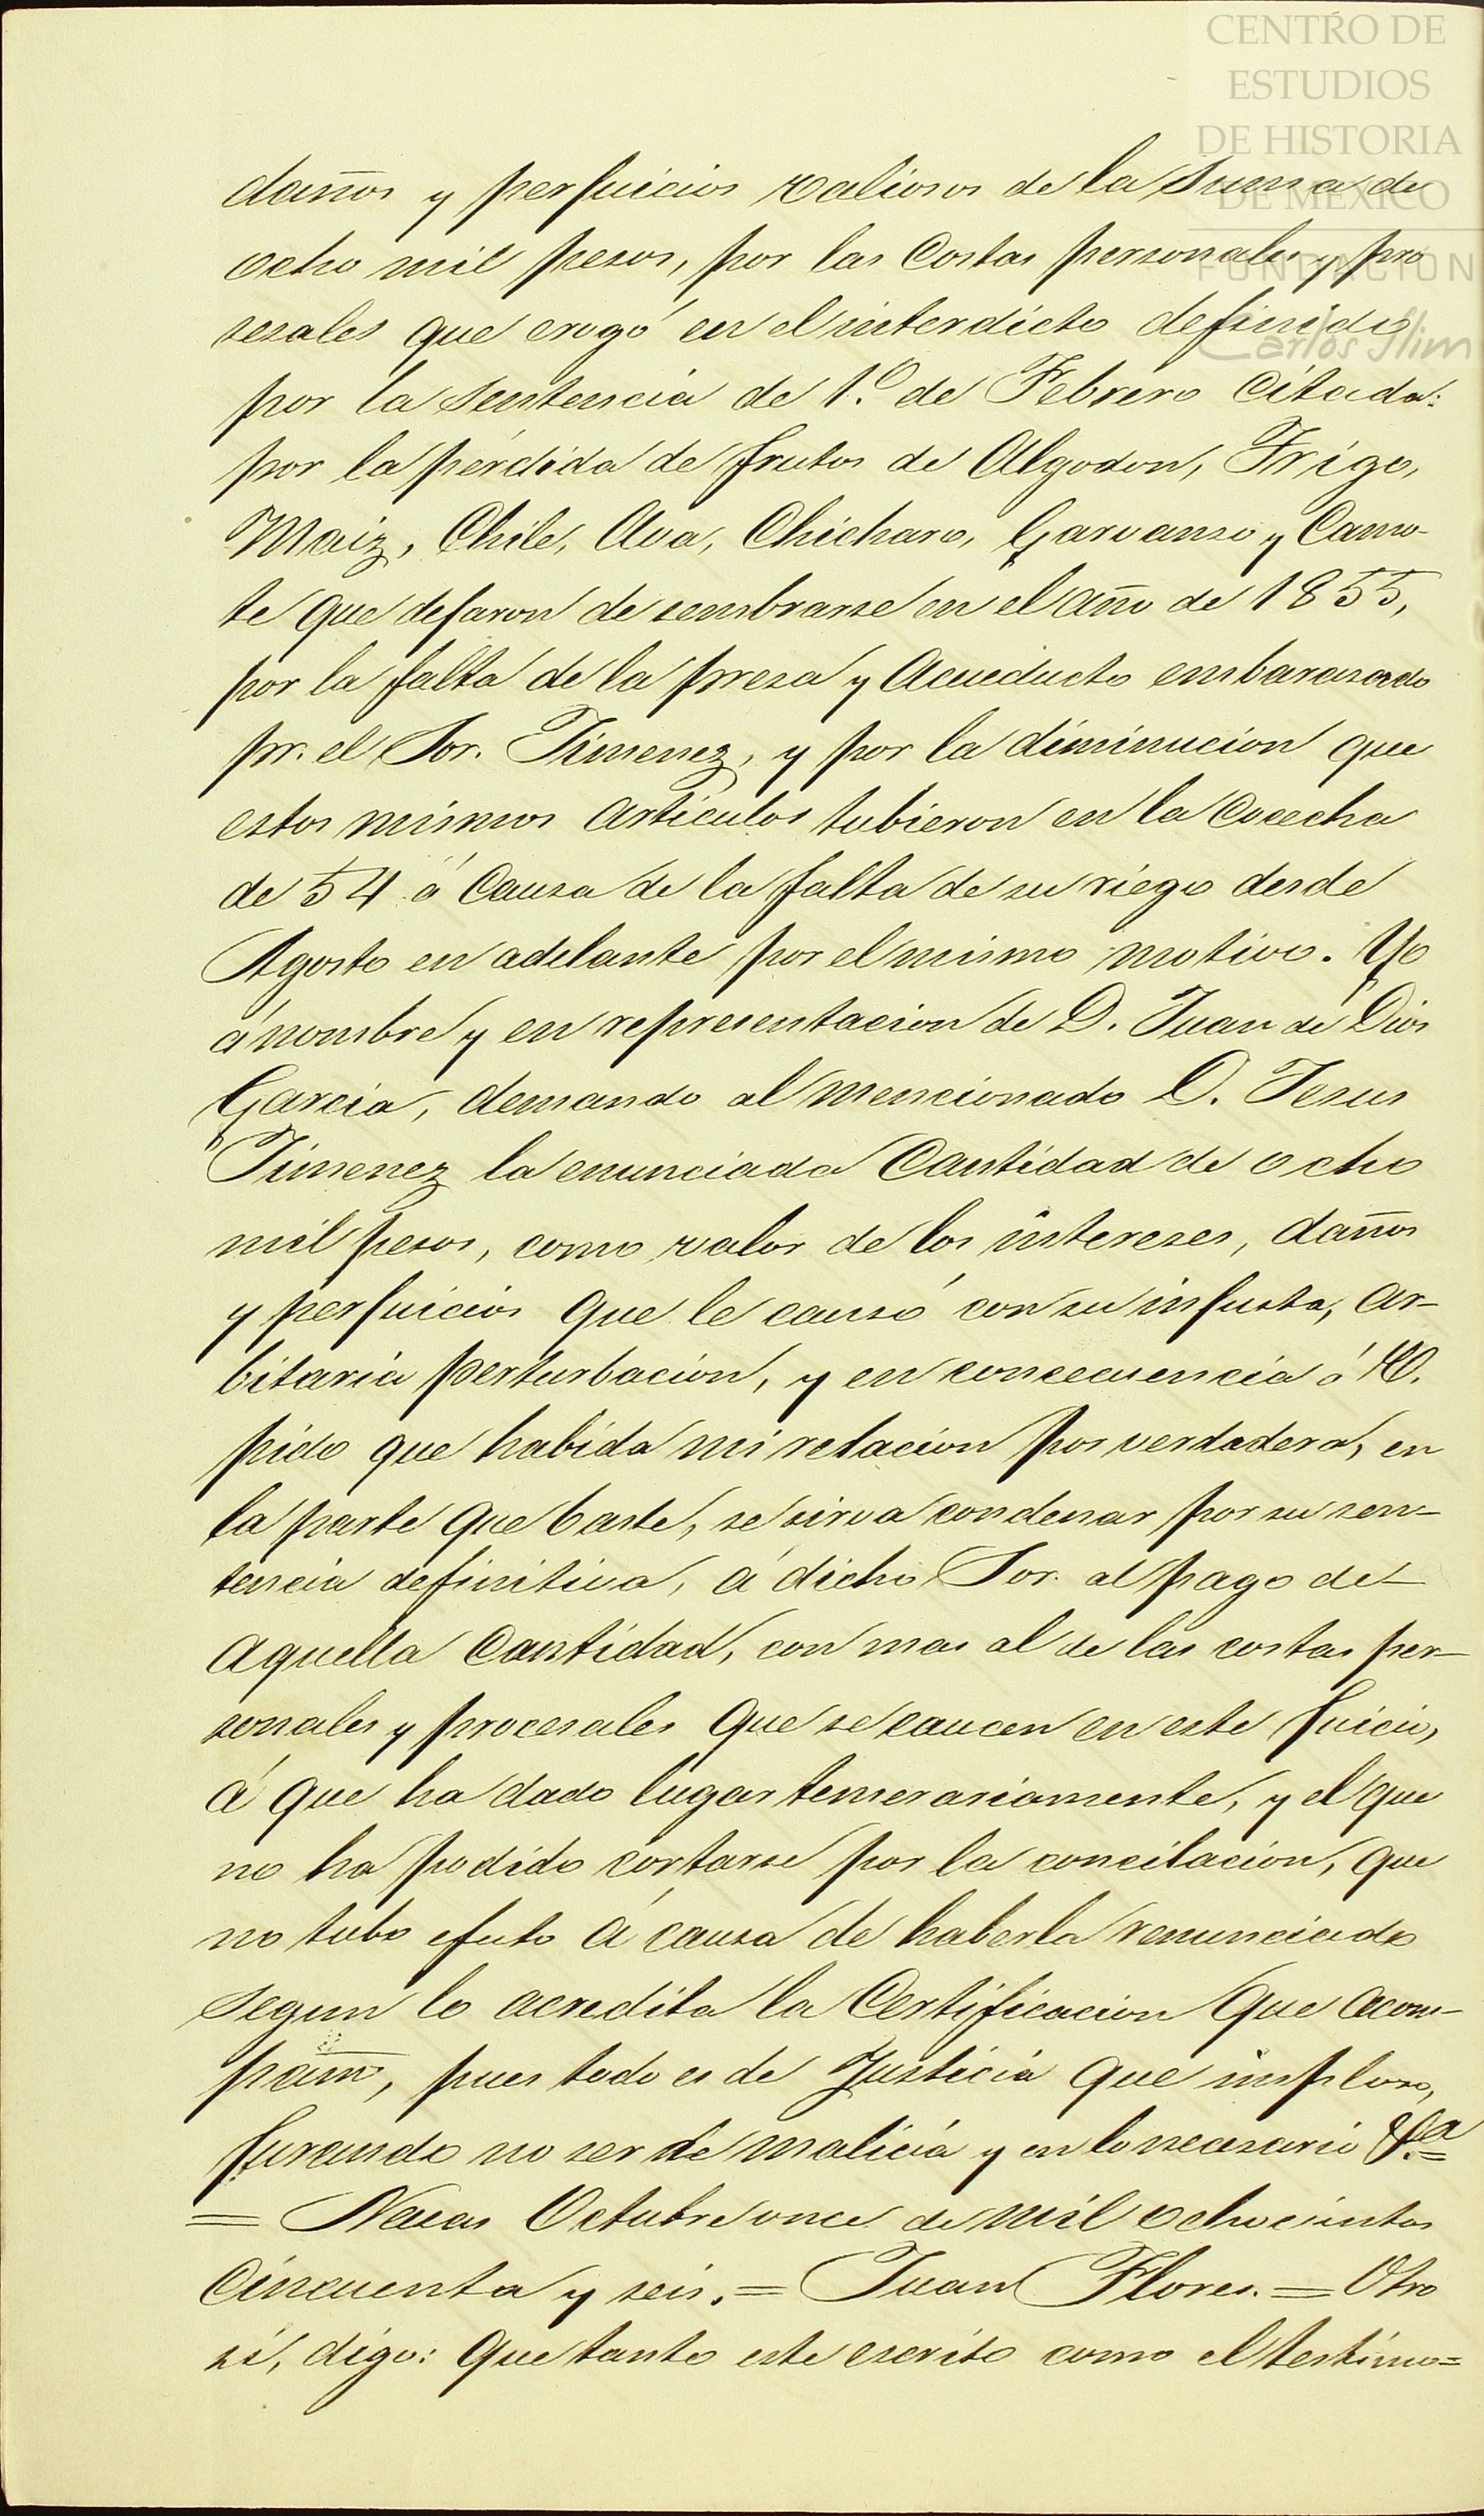 CENTRO DE
ESTUDIOS
DE HISTORIA
DE MEXICO
FUNDACION
Carlos Slim
daños y perjuicios valiosos de la Suma de
ocho mil pesos, por las Costas personales y pro
sesales que erogó en el interdicto definido
por la Sentencia de 1.º de Febrero Citada:
por la pérdida de frutos de Algodon, Trigo,
Maiz, Chile, Ava, Chicharo, Garvanso y Camo-
te que dejaron de sembrarse en el año de 1855,
por la falta de la presa y Acueducto embarasado
pr. el Sor. Jimenez, y por la diminucion que
estos mismos Artículos tubieron en la Cocecha
de 54 á Causa de la falta de su riego desde
Agosto en adelante por el mismo motivo. Yo
á nombre y en representacion de D. Juan de Dios
Garcia, demando al mencionado D. Jesus
Jimenez la enunciada Cantidad de ocho
mil pesos, como valor de los intereses, daños
y perjuicios que le causó con su injusta, ar-
bitaria perturbacion, y en concecuencia á V.
pido que habida mi relacion por verdadera, en
la parte que baste, se sirva condenar por su sen-
tencia definitiva, á dicho Sor. al pago de
aquella Cantidad, con mas al de las costas per-
sonales y procesales que se caucen en este juicio,
á que ha dado lugar temerariamente, y el que
no ha podido cortarse por la concilacion, que
no tubo efecto á causa de haberla renunciado
segun lo acredita la Certificacion que acom-
paño, pues todo es de Justicia que imploro,
jurando no ser de malicia y en lo necesario &.a
= Navas Octubre once de mil ochocientos
Cincuenta y seis. = Juan Flores. = Otro
sí, digo: que tanto este escrito como el testimo=